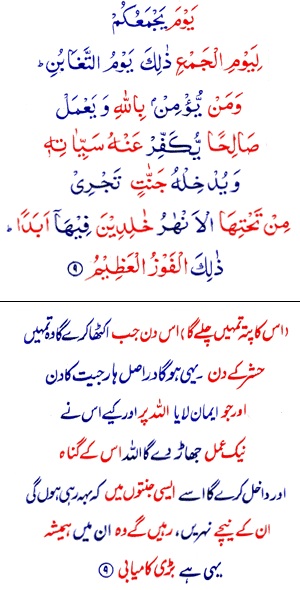 يَوْمَ يَجْمَعُكُمْ
لِيَوْمِ الْجَمْعِ ذٰلِكَ يَوْمُ التَّغَابُنِ ؕ
وَمَنْ يُّؤْمِنْۢ بِاللّٰهِ وَيَعْمَلْ
صَالِحًا يُّكَفِّرْ عَنْهُ سَيِّاٰتِهٖ
وَيُدْخِلْهُ جَنّٰتٍ تَجْرِىْ
مِنْ تَحْتِهَا الْاَنْهٰرُ خٰلِدِيْنَ فِيْهَاۤ اَبَدًا ؕ
ذٰلِكَ الْفَوْزُ الْعَظِيْمُ ۹
(اس کا پتہ تمہیں چلے گا) اس دن جب اکٹھا کرے گا وہ تمہیں
حشر کے دن ۔ یہی ہوگا دراصل ہار جیت کا دن
اور جو ایمان لایا اللہ پر اور کیے اس نے
نیک عمل جھاڑ دے گا اللہ اس کے گناہ
اور داخل کرے گا اسے ایسی جنتوں میں کہ بہہ رہی ہوں گی
ان کے نیچے نہریں، رہیں گے وہ ان میں ہمیشہ
یہی ہے بڑی کامیابی ۹